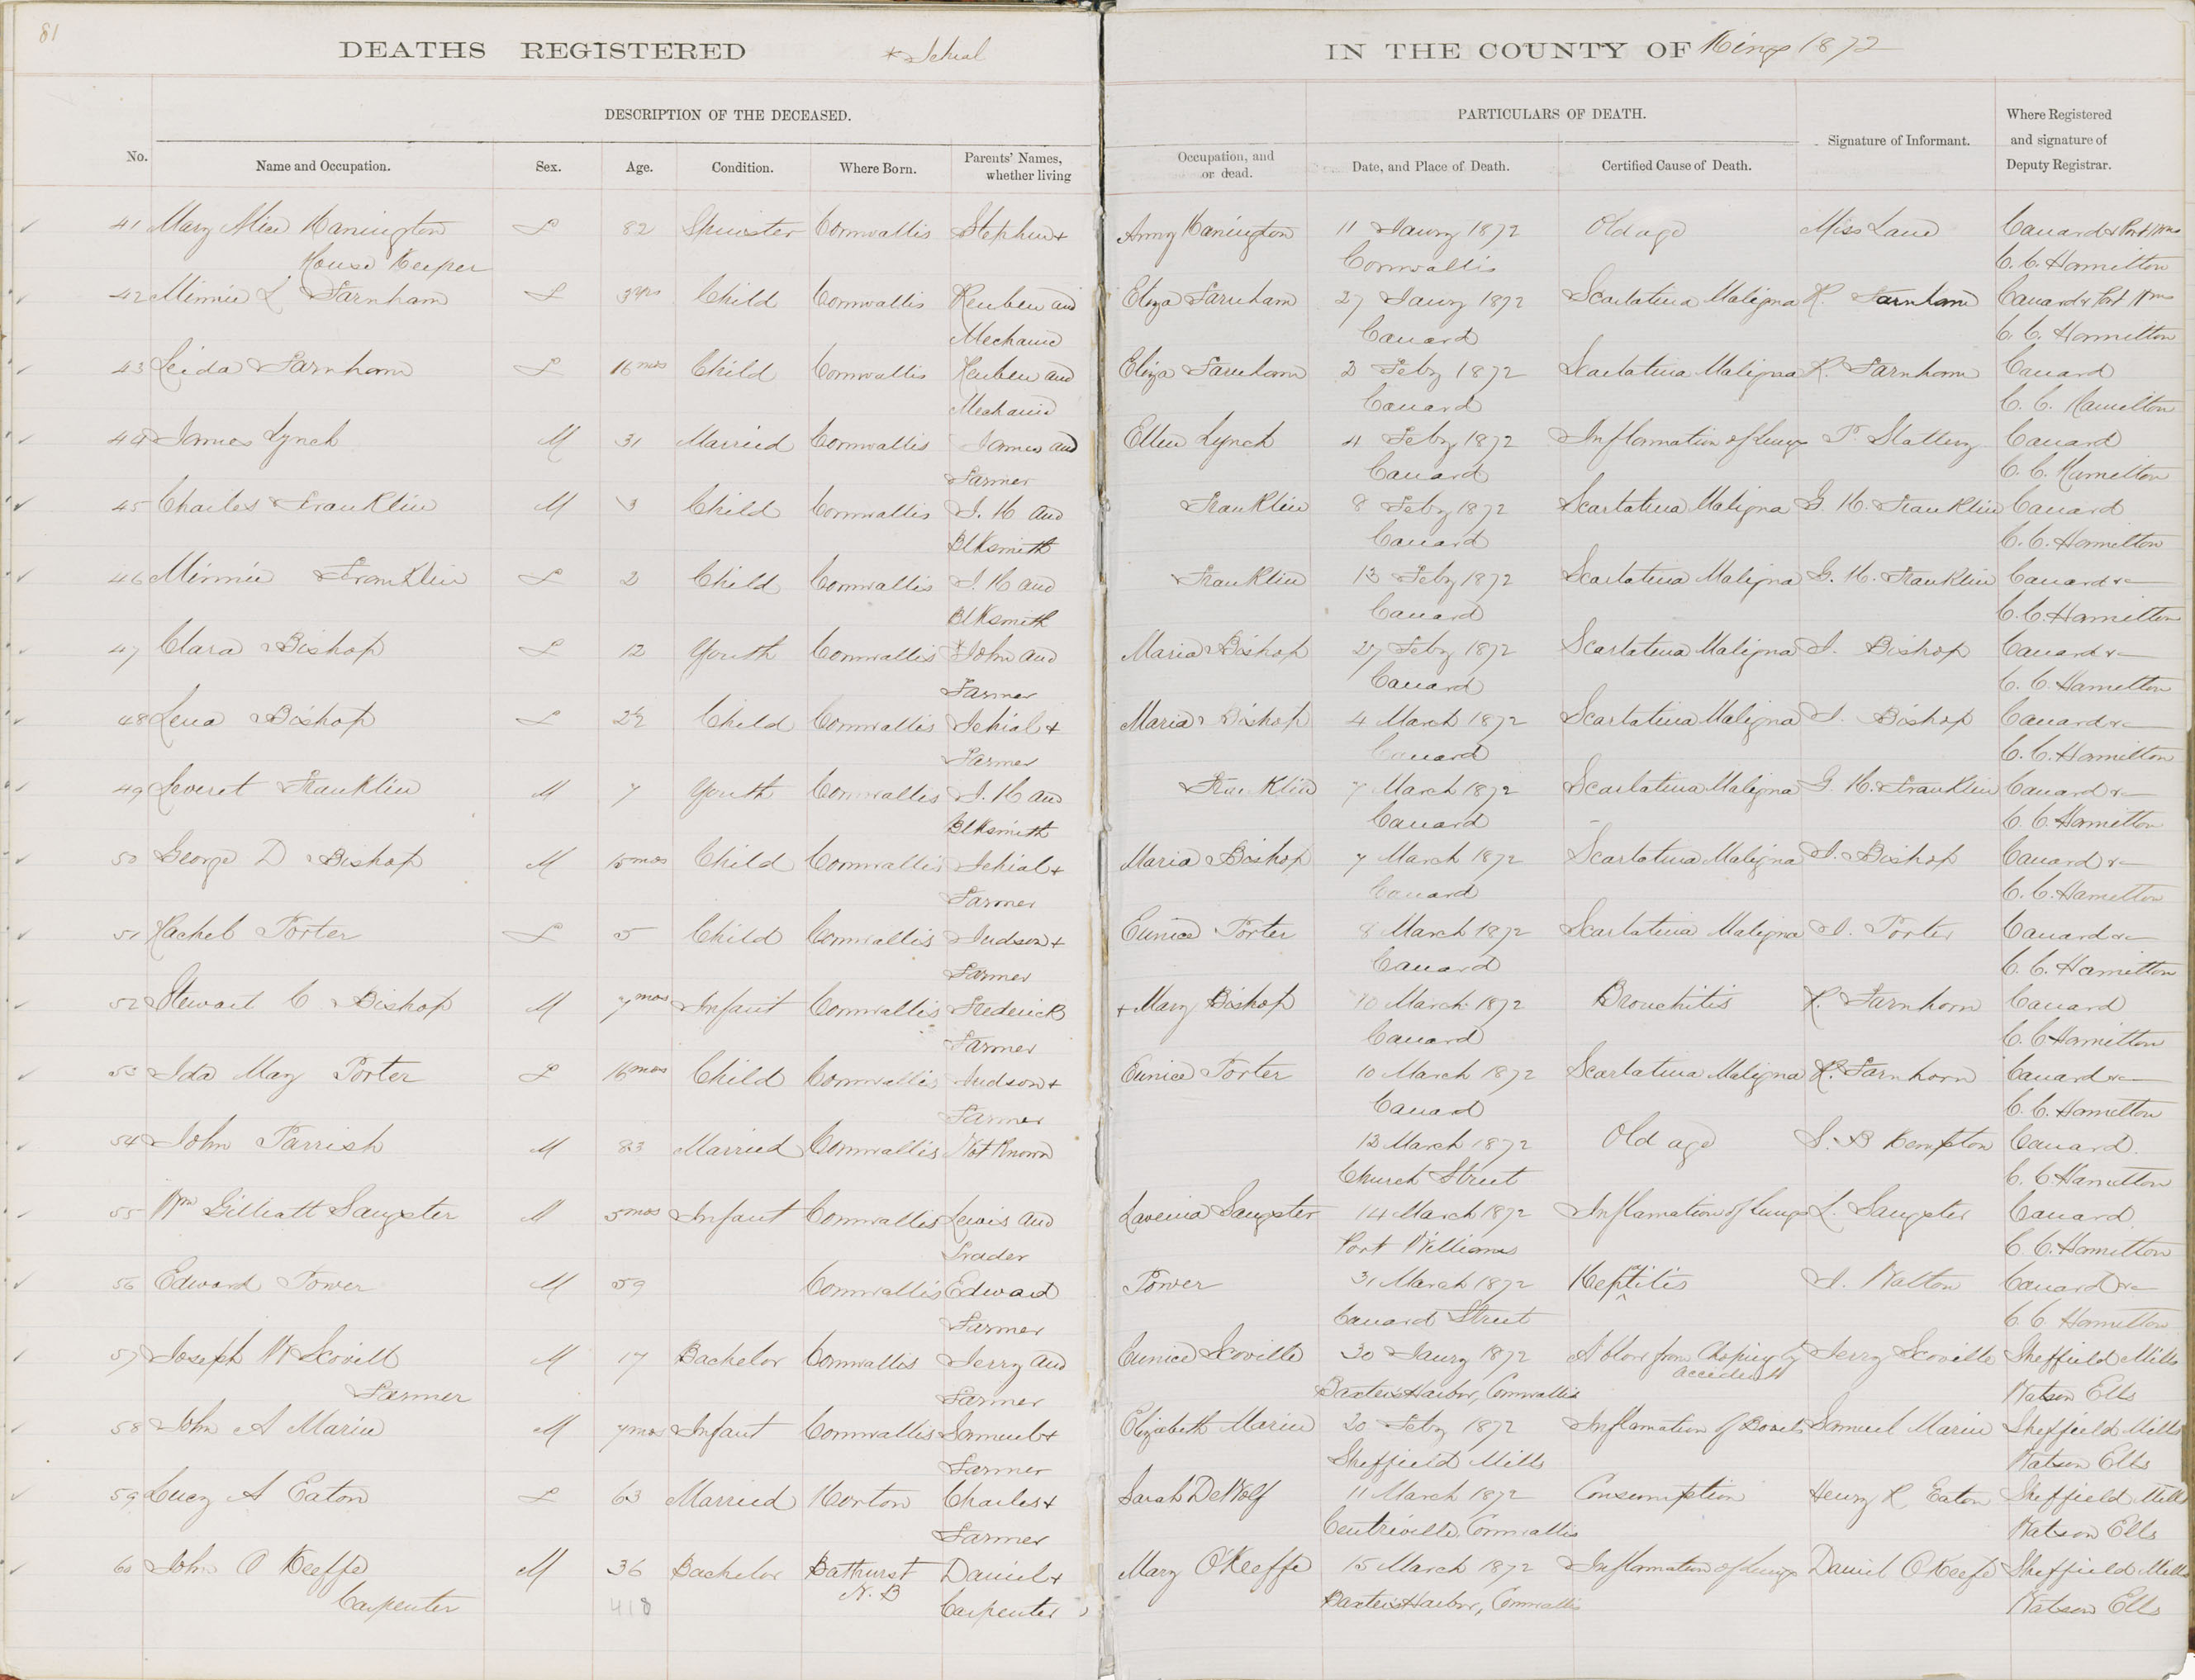 81
DEATHS REGISTERED * Jehial IN THE COUNTY OF Kings 1872
DESCRIPTION OF THE DECEASED. PARTICULARS OF DEATH.
No. Name and Occupation. Sex. Age. Condition. Where Born. Parents' Names, whether living Occupation, and or dead. Date, and Place of Death. Certified Cause of Death. Signature of Informant. Where Registered and signature of Deputy Registrar.
41 Mary Alice Hanington F 82 Spinster Cornwallis Stephen + Anny Hanington 11 Jauny 1872 Old age Miss Lane Canard & Port Wms
House Keeper Cornwallis C. C. Hamilton
42 Minnie L Farnham F 3 yrs Child Cornwallis Reuben and Eliza Farnham 27 Jauny 1872 Scarlatina Maligna R. Farnham Canard & Port Wms
Mechanic Canard C. C. Hamilton
43 Leida Farnham F 16 mos Child Cornwallis Reuben and Eliza Farnham 2 Feby 1872 Scarlatina Maligna R. Farnham Canard
Mechanic Canard C. C. Hamilton
44 James Lynch M 31 Married Cornwallis James and Ellen Lynch 4 Feby 1872 Inflamation of Lungs P. Slattery Canard
Farmer Canard C. C. Hamilton
45 Charles Franklin M 3 Child Cornwallis J. H and Franklin 8 Feby 1872 Scarlatina Maligna G. H. Franklin Canard
Blksmith Canard C. C. Hamilton
46 Minnie Franklin F 2 Child Cornwallis J. H and Franklin 13 Feby 1872 Scarlatina Maligna G. H. Franklin Canard &c
Blksmith Canard C. C. Hamilton
47 Clara Bishop F 12 Youth Cornwallis *John and Maria Bishop 27 Feby 1872 Scarlatina Maligna J. Bishop Canard &c
Farmer Canard C. C. Hamilton
48 Lena Bishop F 2½ Child Cornwallis Jehial + Maria Bishop 4 March 1872 Scarlatina Maligna J. Bishop Canard &c
Farmer Canard C. C. Hamilton
49 Loveret Franklin M 7 Youth Cornwallis J. H and Franklin 7 March 1872 Scarlatina Maligna G. H. Franklin Canard &c
Blksmith Canard C. C. Hamilton
50 George D Bishop M 15 mos Child Cornwallis Jehial + Maria Bishop 7 March 1872 Scarlatina Maligna J. Bishop Canard &c
Farmer Canard C. C. Hamilton
51 Rachel Porter F 5 Child Cornwallis Judson + Eunice Porter 8 March 1872 Scarlatina Maligna J. Porter Canard &c
Farmer Canard C. C. Hamilton
52 Stewart C Bishop M 7 mos Infant Cornwallis Frederick + Mary Bishop 10 March 1872 Bronchitis R. Farnhorn Canard
Farmer Canard C. C Hamilton
53 Ida May Porter F 16 mos Child Cornwallis Judson + Eunice Porter 10 March 1872 Scarlatina Maligna R. Farnhorn Canard &c
Farmer Canard C. C. Hamilton
54 John Parrish M 83 Married Cornwallis Not Known 13 March 1872 Old age S. B Kempton Canard.
Church Street C. C Hamilton
55 Wm Gilliatt Sangster M 5 mos Infant Cornwallis Lewis and Lavenia Sangster 14 March 1872 Inflamation of Lungs L. Sangster Canard
Trader Port Williams C. C. Hamilton
56 Edward Power M 59 Cornwallis Edward Power 31 March 1872 Heptitis J. Walton Canard &c
Farmer Canard Street C. C. Hamilton
57 Joseph W Scovill M 17 Bachelor Cornwallis Jerry and Eunice Scoville 30 Jauny 1872 A blow from Choping by Jerry Scoville Sheffield Mills
accident
Farmer Farmer Baxter's Harbor, Cornwallis Watson Ells
58 John A Marin M 7 mos Infant Cornwallis Samuel + Elizabeth Marin 20 Feby 1872 Inflamation of Bowels Samuel Marin Sheffield Mills
Farmer Sheffield Mills Watson Ells
59 Lucy A Eaton F 63 Married Horton Charles + Sarah DeWolf 11 March 1872 Consumption Henry K Eaton Sheffield Mills
Farmer Centreville, Cornwallis Watson Ells
60 John O Keeffe M 36 Bachelor Bathurst Daniel + Mary O'Keeffe 15 March 1872 Inflamation of Lungs Daniel O Keefe Sheffield Mills
N. B
Carpenter 418 Carpenter Baxter's Harbor, Cornwallis Watson Ells